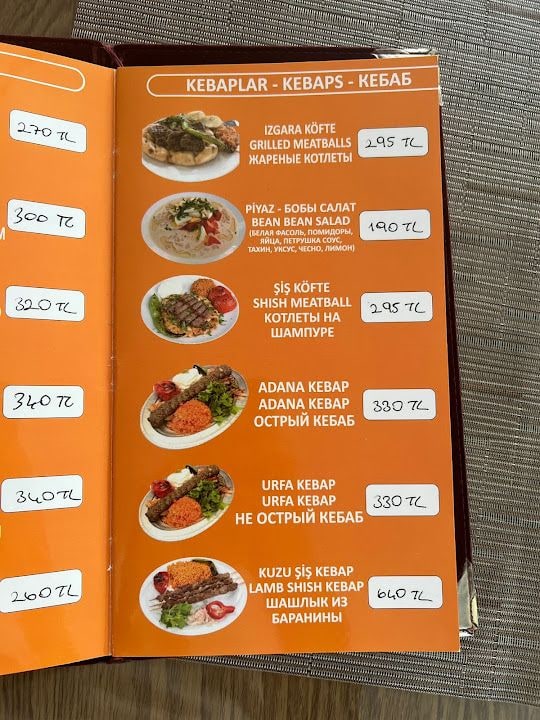 270 TL
300 TL
M
320 TL
340 TL
340 TL
260 TL
KEBAPLAR - KEBAPS - КЕБАБ
IZGARA KÖFTE
GRILLED MEATBALLS
ЖАРЕНЫЕ КОТЛЕТЫ
295 TL
PİYAZ - БОБЫ САЛАТ
BEAN BEAN SALAD
(БЕЛАЯ ФАСОЛЬ, ПОМИДОРЫ,
ЯЙЦА, ПЕТРУШКА СОУС,
ТАХИН, УКСУС, ЧЕСНО, ЛИМОН)
190 TL
ŞİŞ KÖFTE
SHISH MEATBALL
КОТЛЕТЫ НА
ШАМПУРЕ
295 TL
ADANA KEBAP
ADANA KEBAP
ОСТРЫЙ КЕБАБ
330 TL
URFA KEBAP
URFA KEBAP
НЕ ОСТРЫЙ КЕБАБ
330 TL
KUZU ŞİŞ KEBAP
LAMB SHISH KEBAP
ШАШЛЫК ИЗ
БАРАНИНЫ
640 TL